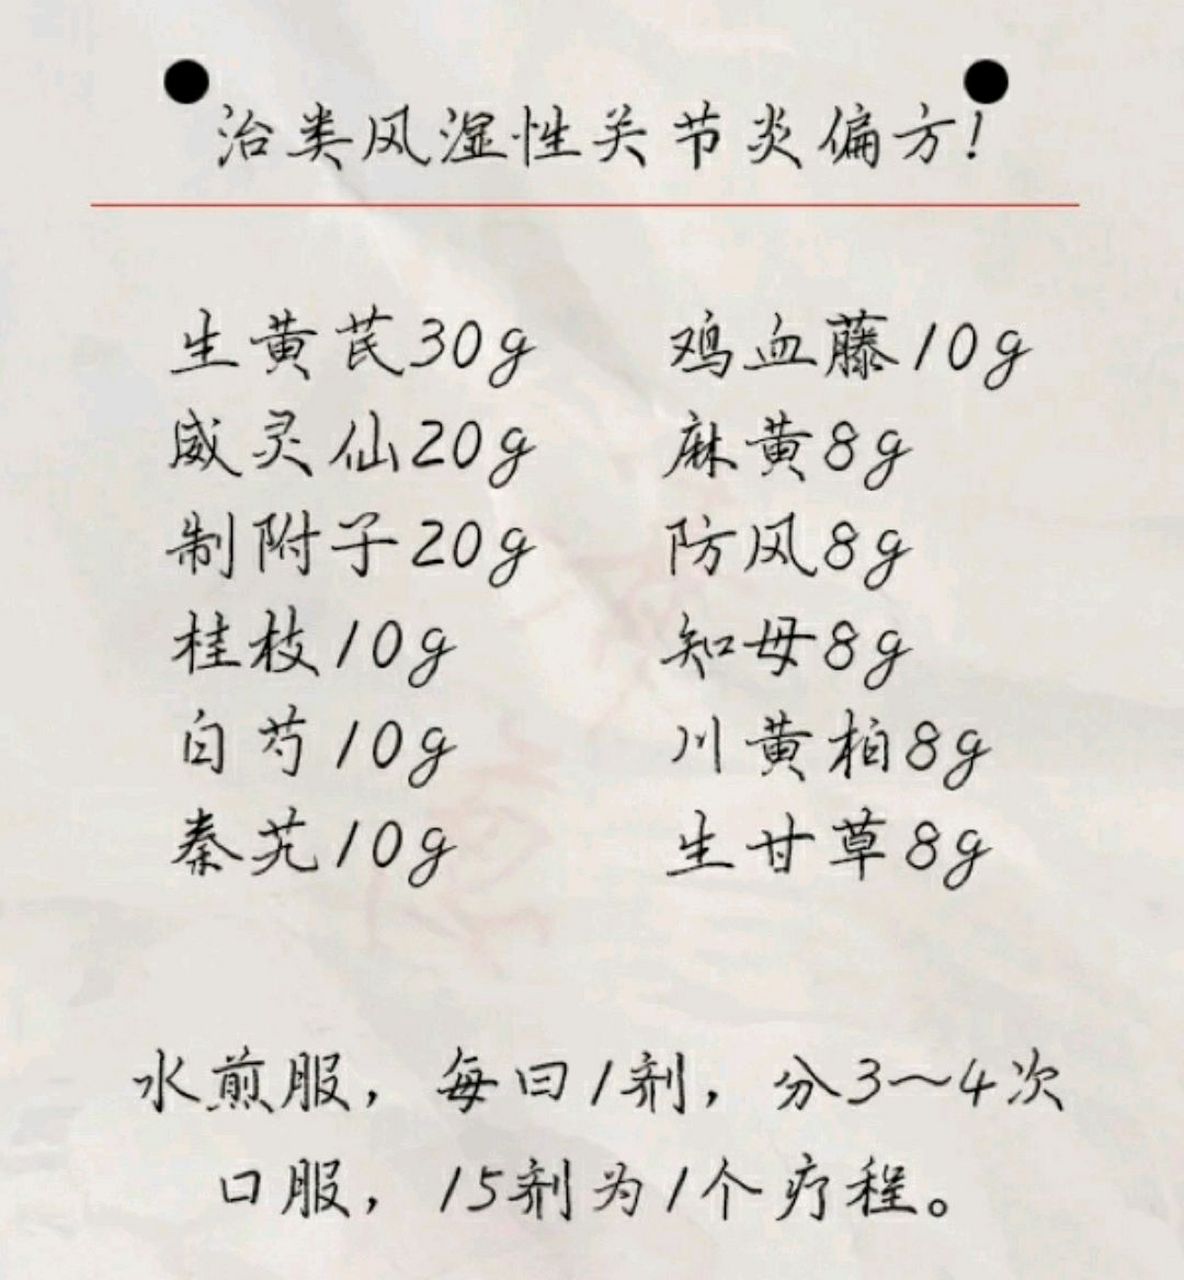 治类风湿性关节炎偏方!
生黄芪30g 鸡血藤10g
威灵仙20g 麻黄8g
制附子20g 防风8g
桂枝10g 知母8g
白芍10g 川黄柏8g
秦艽10g 生甘草8g
水煎服，每日1剂，分3～4次
口服，15剂为1个疗程。